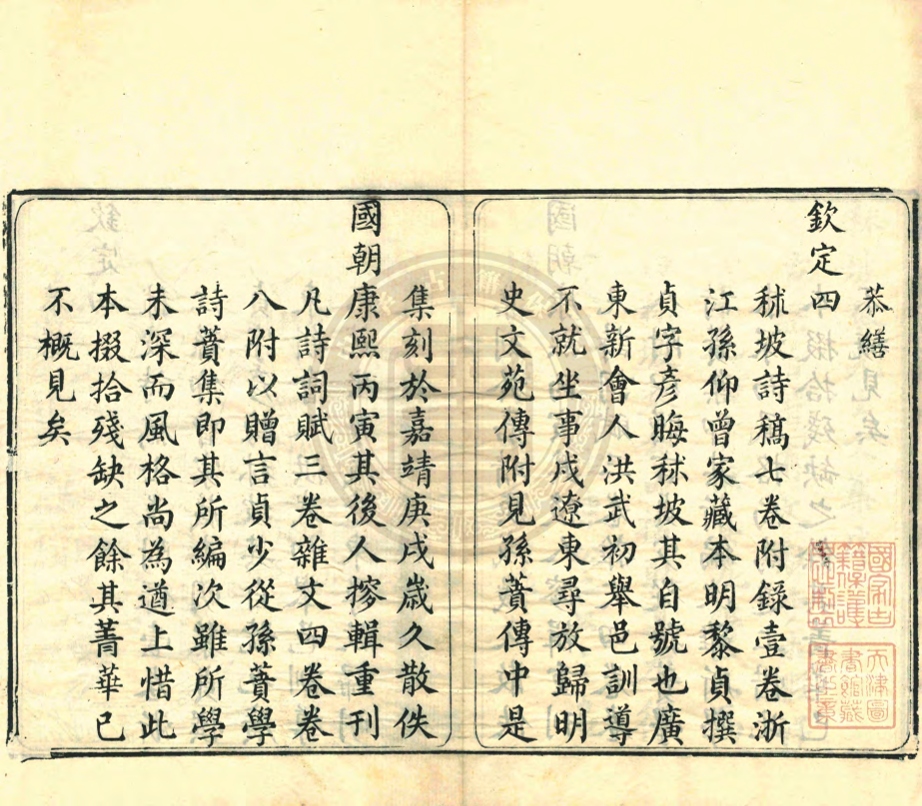 恭繕
欽定四
秫坡詩稿七卷附錄壹卷浙
江孫仰曾家藏本明黎貞撰
貞字彥晦秫坡其自號也廣
東新會人洪武初舉邑訓導
不就坐事戍遼東尋放歸明
史文苑傳附見孫蕡傳中是
集刻於嘉靖庚戌嵗久散佚
國朝康熙丙寅其後人摉輯重刊
凡詩詞賦三卷雜文四卷卷
八附以贈言貞少從孫蕡學
詩蕡集即其所編次雖所學
未深而風格尚為遒上惜此
本掇拾殘缺之餘其菁華已
不概見矣
國家古
籍保護
天津圖
書館藏